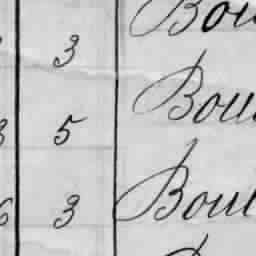 3 Bou
3 5 Bou
6 3 Boul